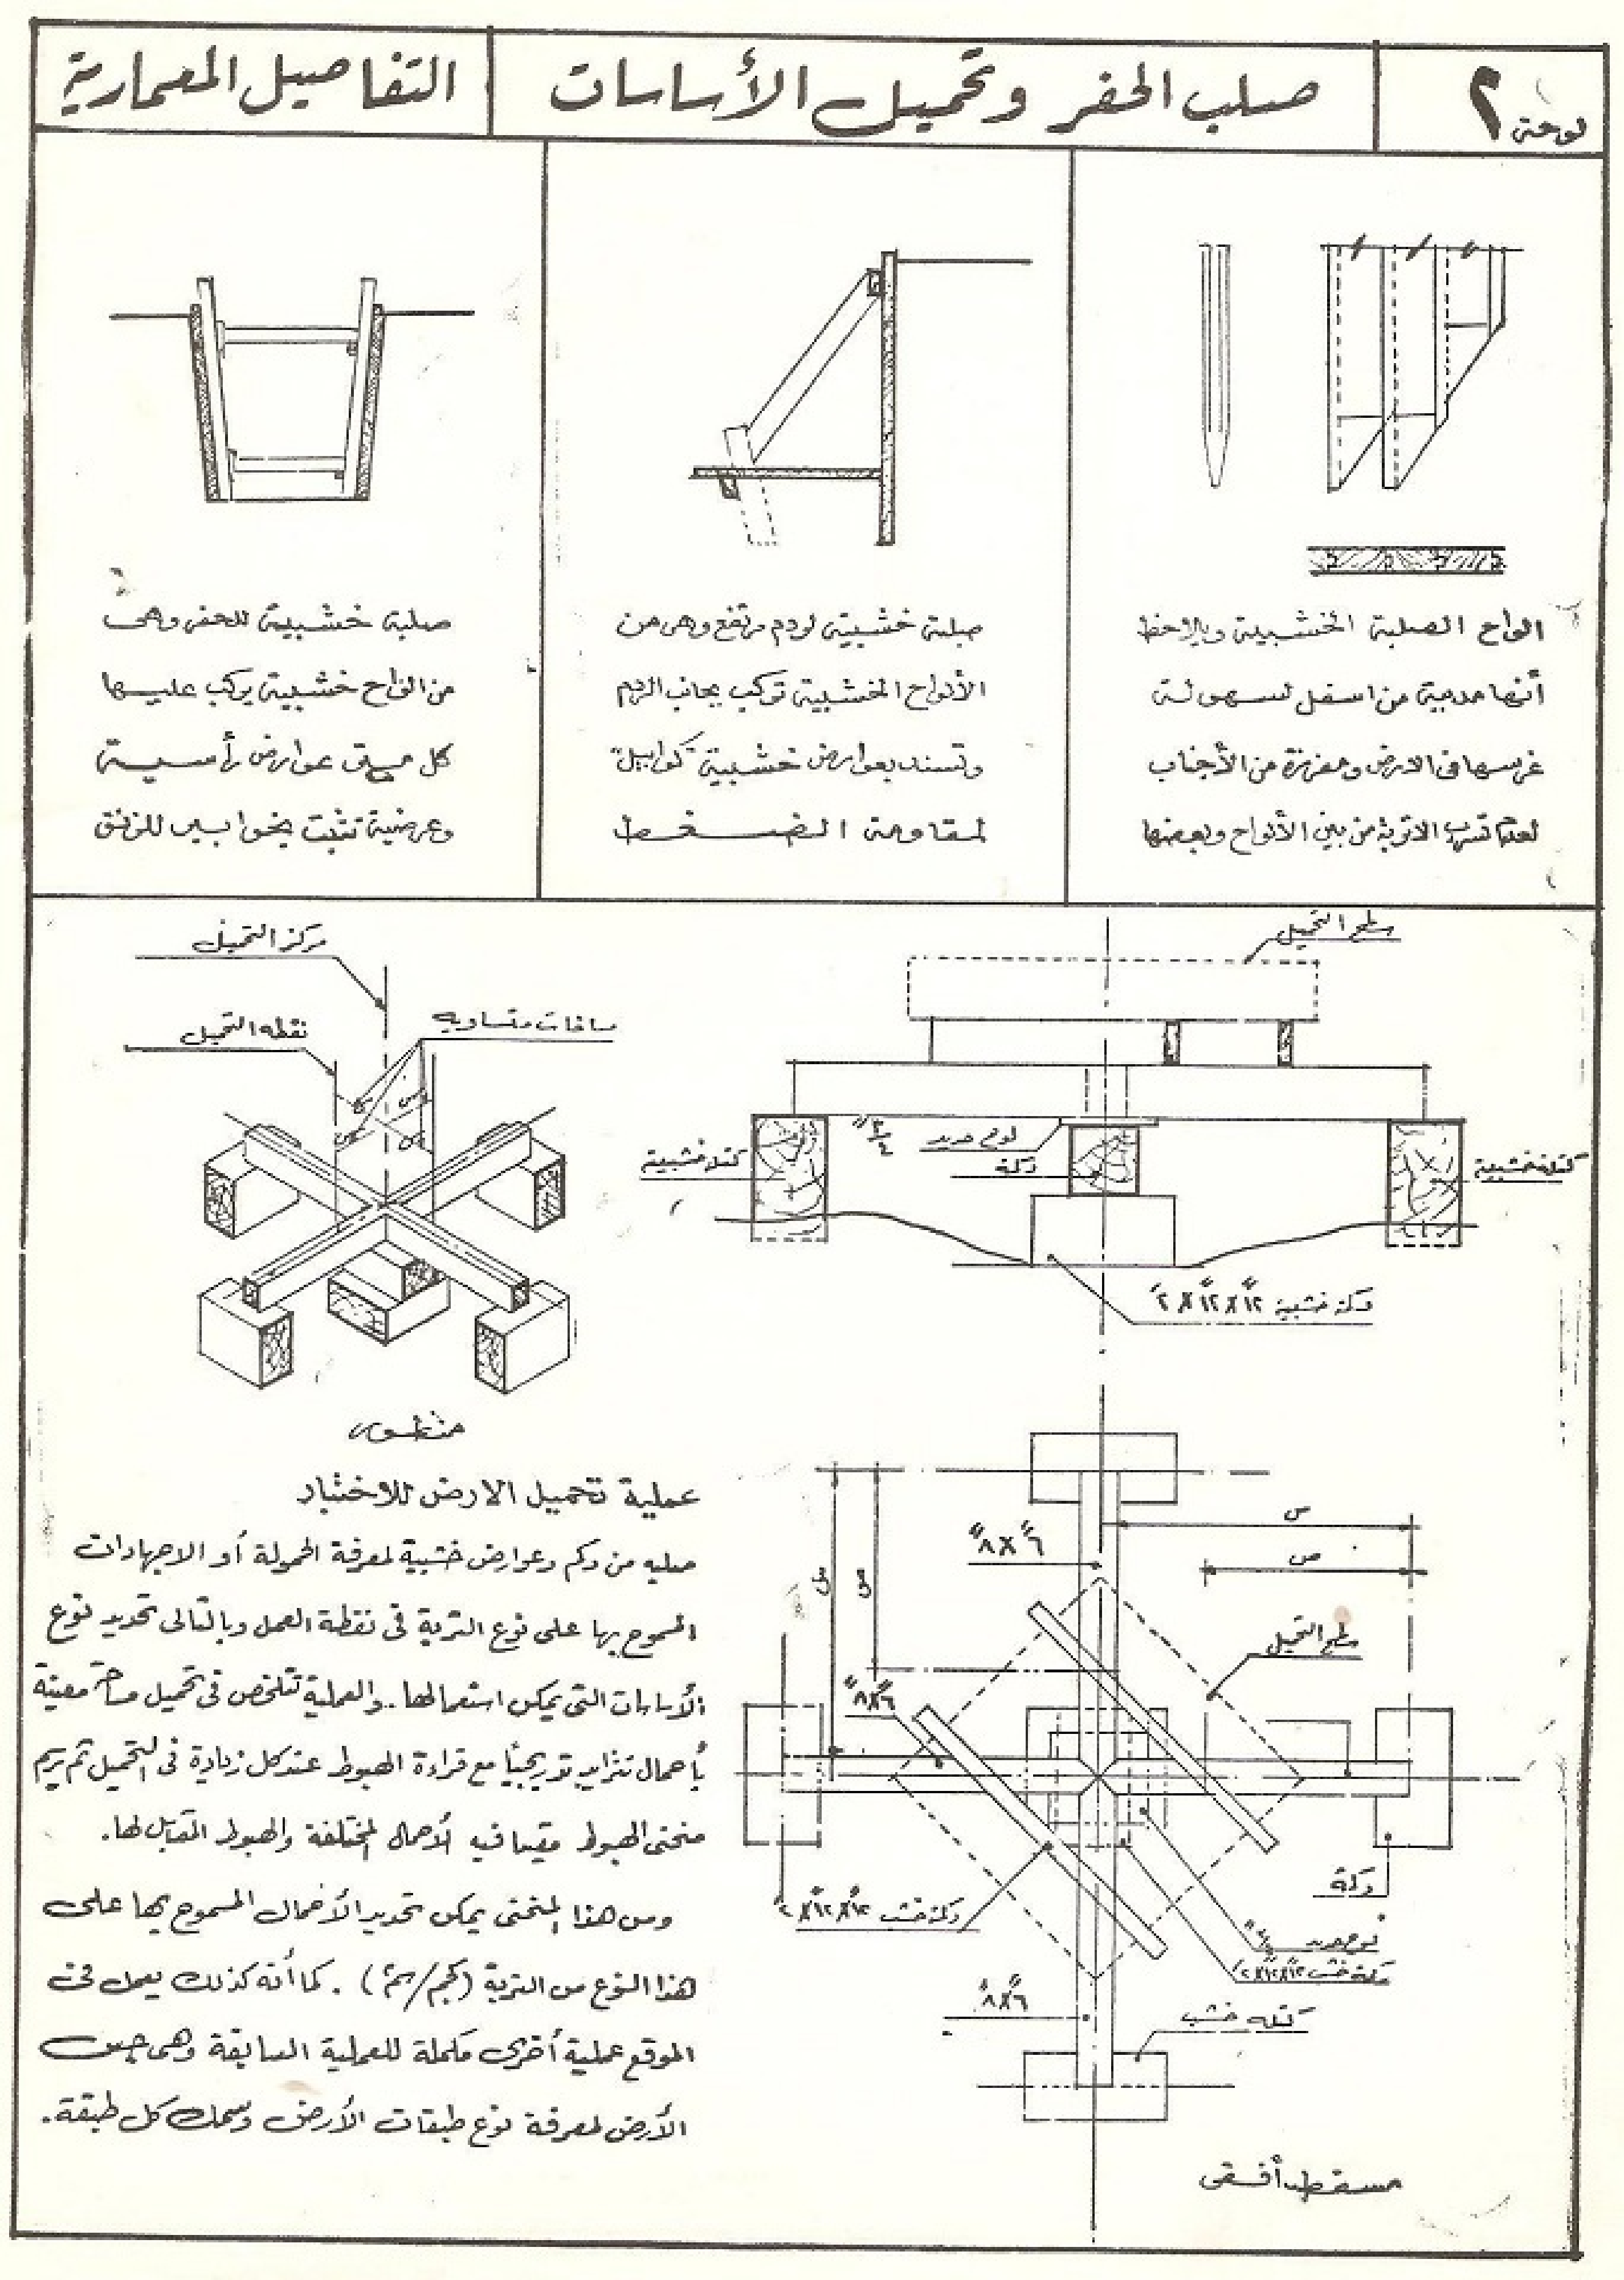 لوحة ٢
صلب الحفر وتحميل الأساسات
التفاصيل المعمارية
الواح الصلبة الخشبية ويلاحظ
أنها مدببة من اسفل لسهولة
غرسها فى الارض ومفرزة من الأجناب
لعدم تسرب الاتربة من بين الألواح وبعضها
صلبة خشبية لردم مرتفع وهى من
الألواح الخشبية تركب بجانب الردم
وتسند بعوارض خشبية "كوابيل"
لمقاومة الضغط
صلبة خشبية للحفر وهى
من الواح خشبية يركب عليها
كل مسافة عوارض رأسية
وعرضية تثبت بخوابير للزنق
سطح التحميل
لوح حديد ٣/٤"
دكة
كتلة خشبية
كتلة خشبية
دكة خشبية ١٢"×١٢"×٢'
مركز التحميل
نقطة التحميل
مسافات متساويه
س
س
س
منظور
عملية تحميل الارض للاختبار
صلبه من دكم وعوارض خشبية لمعرفة الحمولة أو الاجهادات
المسموح بها على نوع التربة فى نقطة العمل وبالتالى تحديد نوع
الأساسات التى يمكن استعمالها. والعملية تتلخص فى تحميل مساحة معينة
بأحمال تتزايد تدريجيًا مع قراءة الهبوط عند كل زيادة فى التحميل ثم يرسم
منحنى الهبوط مقيما فيه الأحمال المختلفة والهبوط المقابل لها.
ومن هذا المنحنى يمكن تحديد الأحمال المسموح بها على
هذا النوع من التربة (كجم/سم٢). كما أنه كذلك يعمل فى
الموقع عملية أخرى مكملة للعملية السابقة وهى جس
الأرض لمعرفة نوع طبقات الأرض وسمك كل طبقة.
س
ص
س
ص
٦"×٨"
سطح التحميل
٦"×٨"
دكة خشب ١٢"×١٢"×٢
دكة
لوح حديد ٣/٤"
دكة خشب ١٢"×١٢"×٢
٦"×٨"
كتلة خشب
مسقط أفقى